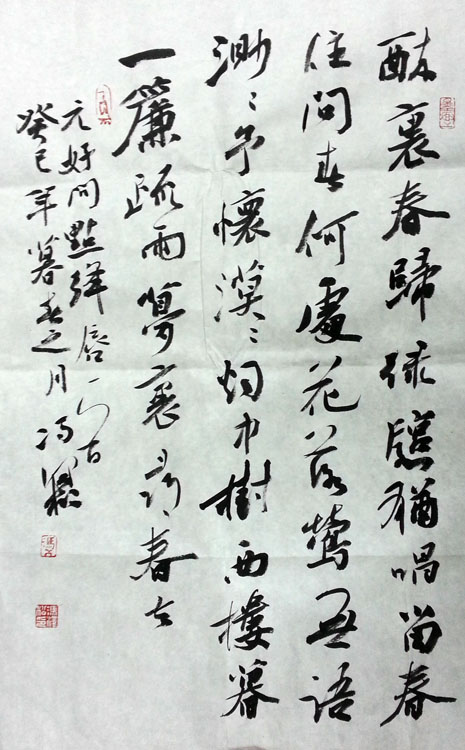 酔裏春歸绿牕猶唱留春
住問春何處花落鶯無語
渺々予懷漠々烟中樹西樓暮
一簾疏雨夢裏尋春去
元好问點绛唇一
癸巳年暮春之月冯